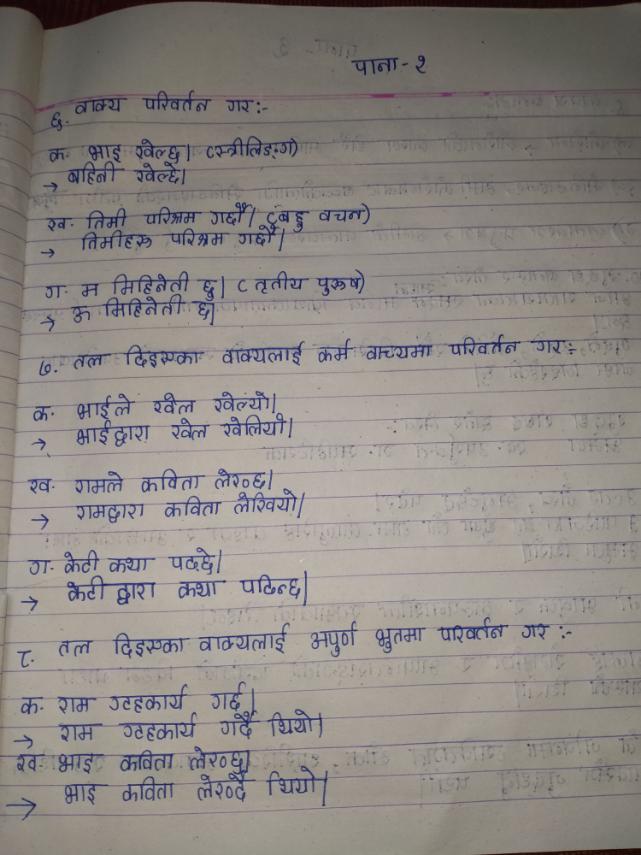 पाना-२
६. वाक्य परिवर्तन गर:-
क. भाइ खेल्छ। (स्त्रीलिङ्ग)
→ बहिनी खेल्छे।
ख. तिमी परिश्रम गर्छौ। (बहु वचन)
→ तिमीहरु परिश्रम गर्छौ।
ग. म मिहिनेती छु। (तृतीय पुरुष)
→ ऊ मिहिनेती छ।
७. तल दिइएका वाक्यलाई कर्म वाच्यमा परिवर्तन गर:
क. भाईले खेल खेल्यो।
→ भाईद्वारा खेल खेलियो।
ख. रामले कविता लेख्छ।
→ रामद्वारा कविता लेखियो।
ग. केटी कथा पढ्छे।
→ केटी द्वारा कथा पढिन्छ।
८. तल दिइएका वाक्यलाई अपुर्ण भुतमा परिवर्तन गर :-
क. राम गृहकार्य गर्छ।
→ राम गृहकार्य गर्दै थियो।
ख. भाइ कविता लेख्छ।
→ भाइ कविता लेख्दै थियो।